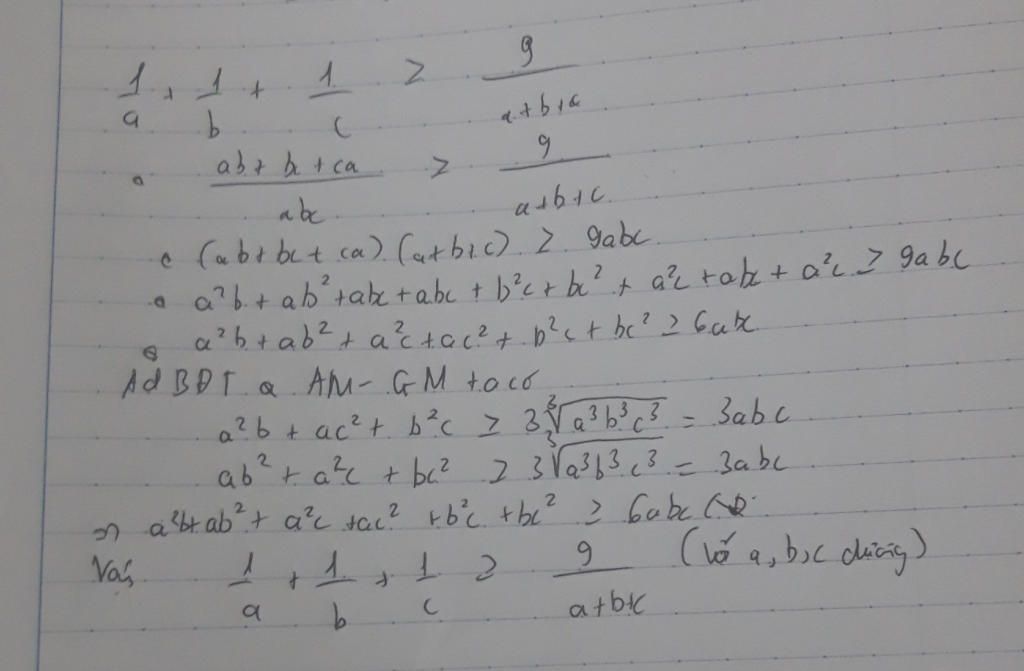 1/a + 1/b + 1/c ≥ 9/(a+b+c)
(ab + bc + ca)/abc ≥ 9/(a+b+c)
(ab+bc+ca)(a+b+c) ≥ 9abc
a²b + ab² + abc + abc + b²c + bc² + a²c + abc + a²c ≥ 9abc
a²b + ab² + a²c + ac² + b²c + bc² ≥ 6abc
Ad BĐT AM-GM ta có
a²b + ac² + b²c ≥ 3∛(a³b³c³) = 3abc
ab² + a²c + bc² ≥ 3∛(a³b³c³) = 3abc
⇒ a²b + ab² + a²c + ac² + b²c + bc² ≥ 6abc
Vậy 1/a + 1/b + 1/c ≥ 9/(a+b+c) (với a, b, c dương)